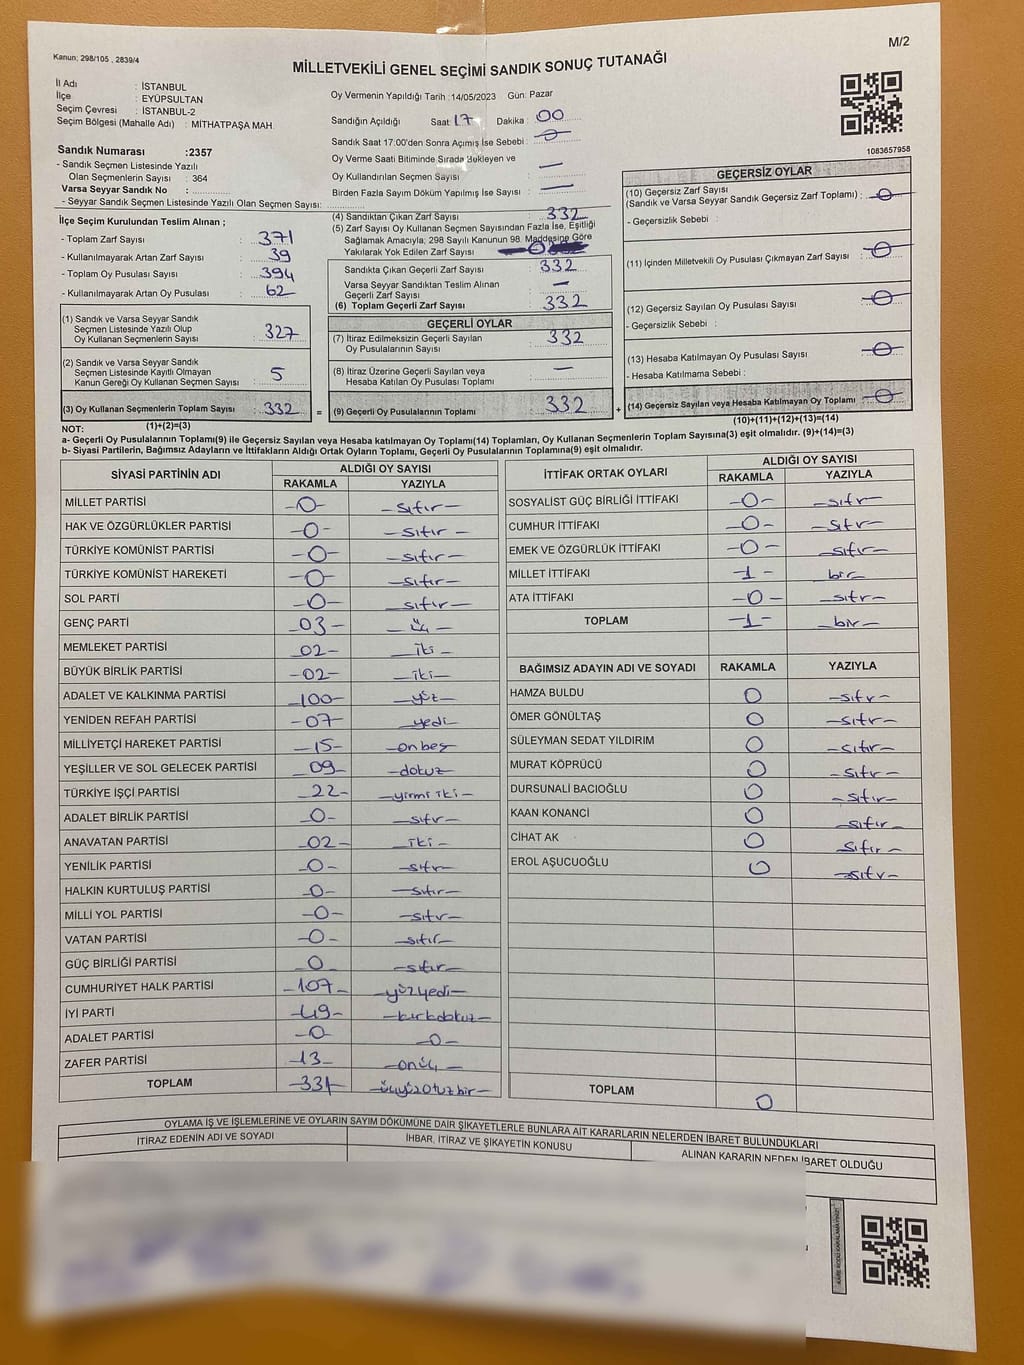 M/2
Kanun: 298/105 , 2839/4
MİLLETVEKİLİ GENEL SEÇİMİ SANDIK SONUÇ TUTANAĞI
İl Adı : İSTANBUL
İlçe : EYÜPSULTAN
Seçim Çevresi : İSTANBUL-2
Seçim Bölgesi (Mahalle Adı) : MİTHATPAŞA MAH.
Sandık Numarası :2357
- Sandık Seçmen Listesinde Yazılı
Olan Seçmenlerin Sayısı : 364
Varsa Seyyar Sandık No :
- Seyyar Sandık Seçmen Listesinde Yazılı Olan Seçmen Sayısı:
Oy Vermenin Yapıldığı Tarih :14/05/2023 Gün: Pazar
Sandığın Açıldığı Saat 17 Dakika : 00
Sandık Saat 17:00'den Sonra Açılmış İse Sebebi : 0
Oy Verme Saati Bitiminde Sırada Bekleyen ve
Oy Kullandırılan Seçmen Sayısı : —
Birden Fazla Sayım Döküm Yapılmış İse Sayısı : —
1083657958
İlçe Seçim Kurulundan Teslim Alınan ;
- Toplam Zarf Sayısı : 371
- Kullanılmayarak Artan Zarf Sayısı : 39
- Toplam Oy Pusulası Sayısı : 394
- Kullanılmayarak Artan Oy Pusulası : 62
(1) Sandık ve Varsa Seyyar Sandık
Seçmen Listesinde Yazılı Olup
Oy Kullanan Seçmenlerin Sayısı : 327
(2) Sandık ve Varsa Seyyar Sandık
Seçmen Listesinde Kayıtlı Olmayan
Kanun Gereği Oy Kullanan Seçmen Sayısı : 5
(3) Oy Kullanan Seçmenlerin Toplam Sayısı : 332 =
(1)+(2)=(3)
(4) Sandıktan Çıkan Zarf Sayısı : 332
(5) Zarf Sayısı Oy Kullanan Seçmen Sayısından Fazla İse, Eşitliği
Sağlamak Amacıyla; 298 Sayılı Kanunun 98. Maddesine Göre
Yakılarak Yok Edilen Zarf Sayısı 0
Sandıkta Çıkan Geçerli Zarf Sayısı : 332
Varsa Seyyar Sandıktan Teslim Alınan
Geçerli Zarf Sayısı : —
(6) Toplam Geçerli Zarf Sayısı : 332
GEÇERLİ OYLAR
(7) İtiraz Edilmeksizin Geçerli Sayılan
Oy Pusulalarının Sayısı : 332
(8) İtiraz Üzerine Geçerli Sayılan veya
Hesaba Katılan Oy Pusulası Toplamı : —
(9) Geçerli Oy Pusulalarının Toplamı : 332 +
GEÇERSİZ OYLAR
(10) Geçersiz Zarf Sayısı
(Sandık ve Varsa Seyyar Sandık Geçersiz Zarf Toplamı) : 0
- Geçersizlik Sebebi :
(11) İçinden Milletvekili Oy Pusulası Çıkmayan Zarf Sayısı : 0
(12) Geçersiz Sayılan Oy Pusulası Sayısı : 0
- Geçersizlik Sebebi :
(13) Hesaba Katılmayan Oy Pusulası Sayısı : 0
- Hesaba Katılmama Sebebi :
(14) Geçersiz Sayılan veya Hesaba Katılmayan Oy Toplamı : 0
(10)+(11)+(12)+(13)=(14)
NOT:
a- Geçerli Oy Pusulalarının Toplamı(9) ile Geçersiz Sayılan veya Hesaba katılmayan Oy Toplamı(14) Toplamları, Oy Kullanan Seçmenlerin Toplam Sayısına(3) eşit olmalıdır. (9)+(14)=(3)
b- Siyasi Partilerin, Bağımsız Adayların ve İttifakların Aldığı Ortak Oyların Toplamı, Geçerli Oy Pusulalarının Toplamına(9) eşit olmalıdır.
SİYASİ PARTİNİN ADI ALDIĞI OY SAYISI
RAKAMLA YAZIYLA
MİLLET PARTİSİ -0- -sıfır-
HAK VE ÖZGÜRLÜKLER PARTİSİ -0- -sıfır-
TÜRKİYE KOMÜNİST PARTİSİ -0- -sıfır-
TÜRKİYE KOMÜNİST HAREKETİ -0- -sıfır-
SOL PARTİ -0- -sıfır-
GENÇ PARTİ -03- -üç-
MEMLEKET PARTİSİ -02- -iki-
BÜYÜK BİRLİK PARTİSİ -02- -iki-
ADALET VE KALKINMA PARTİSİ -100- -yüz-
YENİDEN REFAH PARTİSİ -07- -yedi-
MİLLİYETÇİ HAREKET PARTİSİ -15- -onbeş
YEŞİLLER VE SOL GELECEK PARTİSİ -09- -dokuz
TÜRKİYE İŞÇİ PARTİSİ -22- -yirmi iki-
ADALET BİRLİK PARTİSİ -0- -sıfır-
ANAVATAN PARTİSİ -02- -iki-
YENİLİK PARTİSİ -0- -sıfır-
HALKIN KURTULUŞ PARTİSİ -0- -sıfır-
MİLLİ YOL PARTİSİ -0- -sıfır-
VATAN PARTİSİ -0- -sıfır-
GÜÇ BİRLİĞİ PARTİSİ -0- -sıfır-
CUMHURİYET HALK PARTİSİ -107- -yüzyedi-
İYİ PARTİ -49- -kırkdokuz-
ADALET PARTİSİ -0- -0-
ZAFER PARTİSİ -13- -onüç-
TOPLAM -331- -üçyüzotuzbir-
İTTİFAK ORTAK OYLARI ALDIĞI OY SAYISI
RAKAMLA YAZIYLA
SOSYALİST GÜÇ BİRLİĞİ İTTİFAKI -0- -sıfır-
CUMHUR İTTİFAKI -0- -sıfır-
EMEK VE ÖZGÜRLÜK İTTİFAKI -0- -sıfır-
MİLLET İTTİFAKI -1- bir-
ATA İTTİFAKI -0- -sıfır-
TOPLAM -1- -bir-
BAĞIMSIZ ADAYIN ADI VE SOYADI RAKAMLA YAZIYLA
HAMZA BULDU 0 -sıfır-
ÖMER GÖNÜLTAŞ 0 -sıfır-
SÜLEYMAN SEDAT YILDIRIM 0 -sıfır-
MURAT KÖPRÜCÜ 0 -sıfır-
DURSUNALİ BACIOĞLU 0 -sıfır-
KAAN KONANCİ 0 -sıfır-
CİHAT AK 0 sıfır-
EROL AŞUCUOĞLU 0 -sıfır-
TOPLAM 0
OYLAMA İŞ VE İŞLEMLERİNE VE OYLARIN SAYIM DÖKÜMÜNE DAİR ŞİKAYETLERLE BUNLARA AİT KARARLARIN NELERDEN İBARET BULUNDUKLARI
İTİRAZ EDENİN ADI VE SOYADI İHBAR, İTİRAZ VE ŞİKAYETİN KONUSU ALINAN KARARIN NEDEN İBARET OLDUĞU
KARE KODU KARALAMAYINIZ!